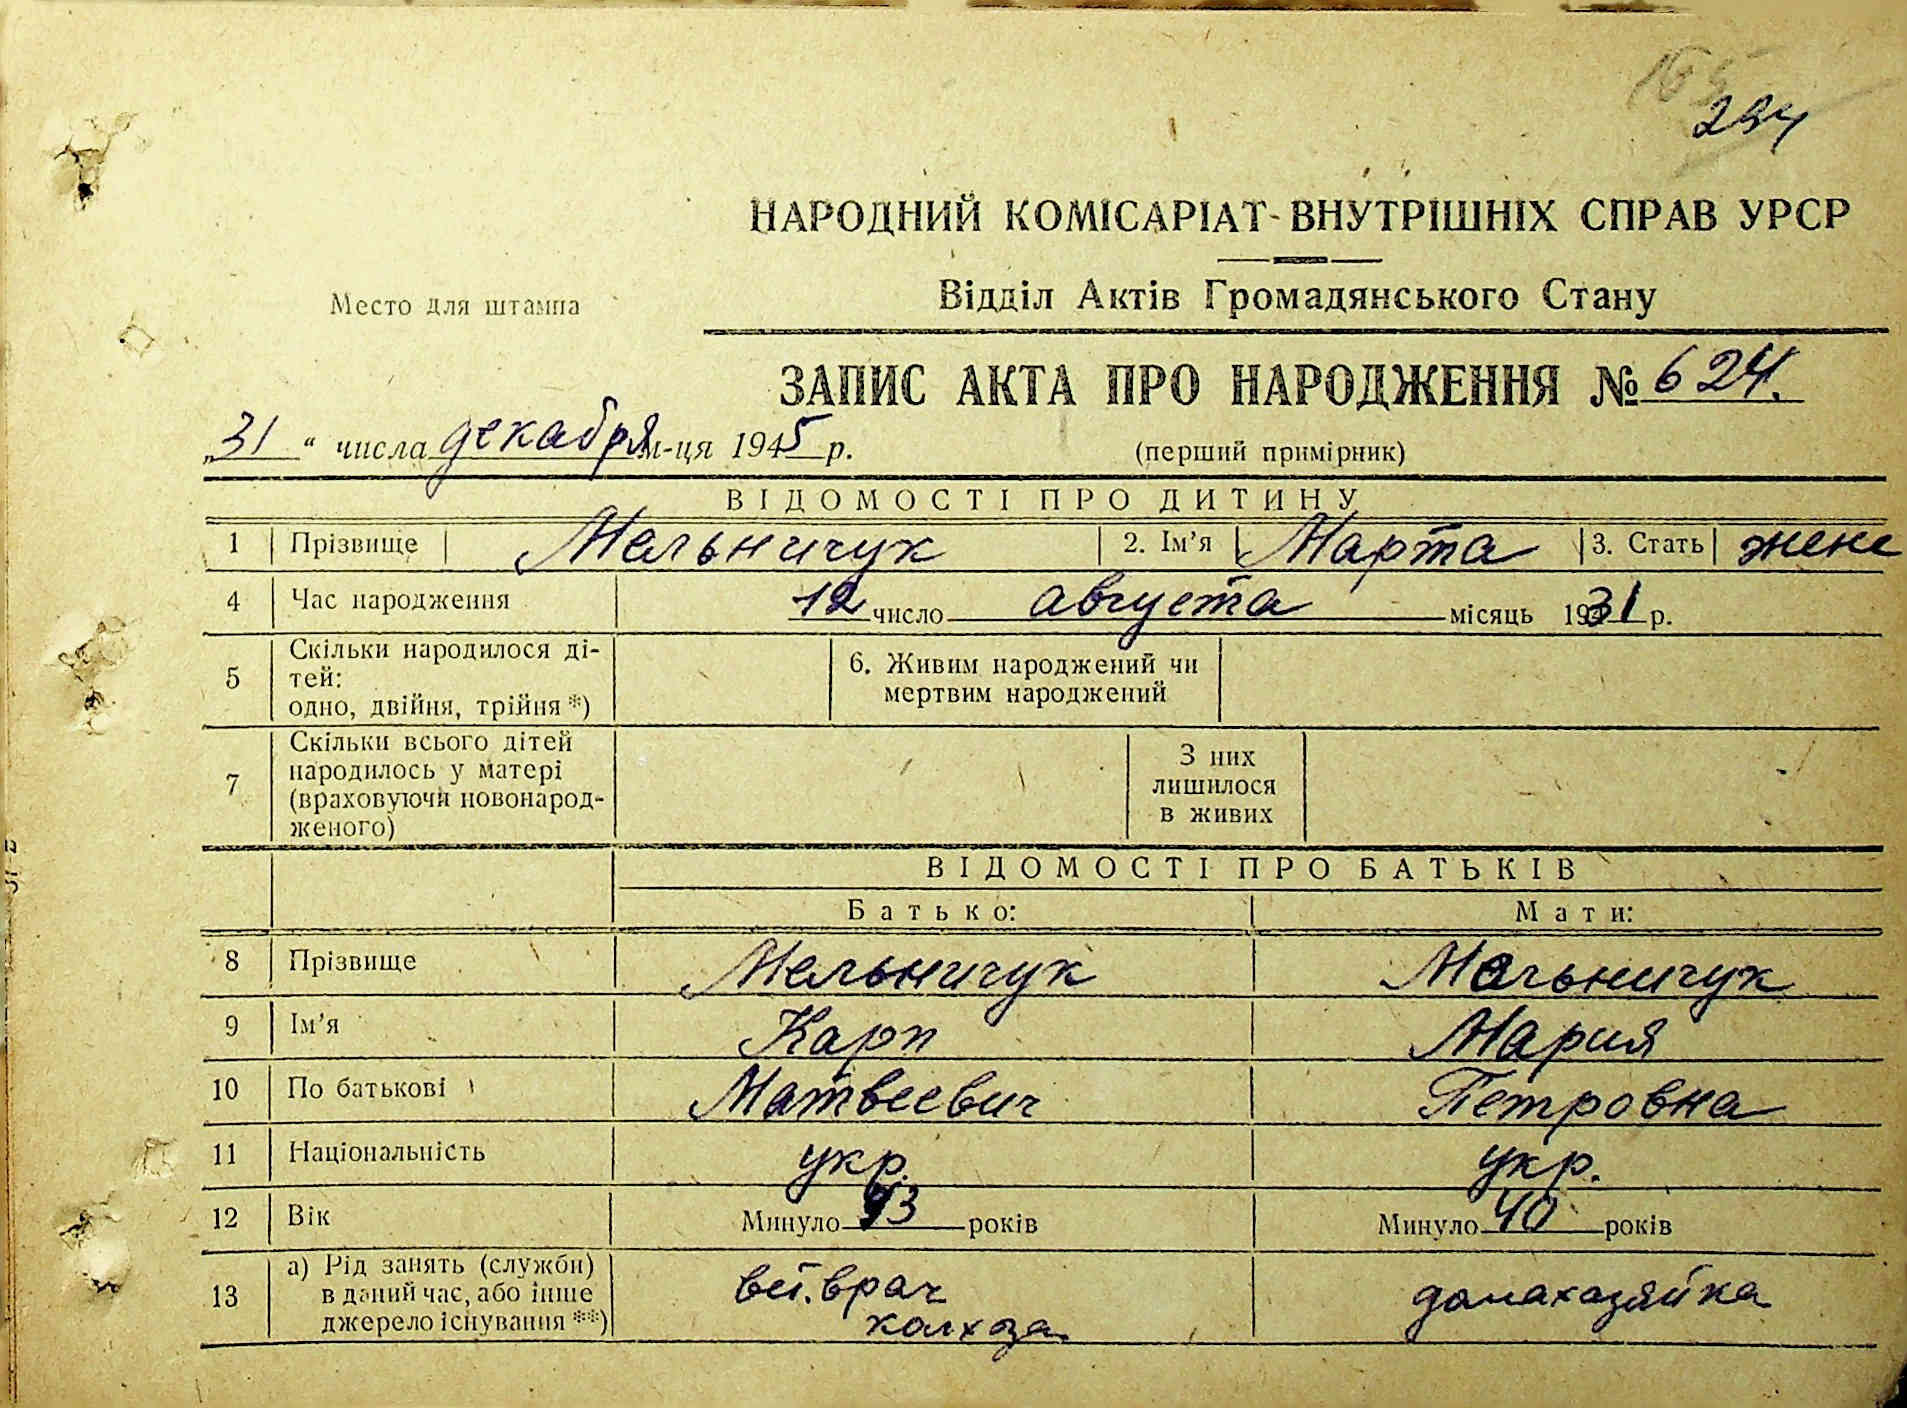 234
НАРОДНИЙ КОМІСАРІАТ ВНУТРІШНІХ СПРАВ УРСР
Відділ Актів Громадянського Стану
Место для штампа
ЗАПИС АКТА ПРО НАРОДЖЕННЯ № 624.
„31“ числа декабря м-ця 1945 р. (перший примірник)
ВІДОМОСТІ ПРО ДИТИНУ
1 Прізвище Мельничук 2. Ім’я Марта 3. Стать женс
4 Час народження 12 число августа місяць 1931 р.
5 Скільки народилося ді-
тей:
одно, двійня, трійня *)
6. Живим народжений чи
мертвим народжений
7 Скільки всього дітей
народилось у матері
(враховуючи новонарод-
женого)
З них
лишилося
в живих
ВІДОМОСТІ ПРО БАТЬКІВ
Батько: Мати:
8 Прізвище Мельничук Мельничук
9 Ім’я Карп Мария
10 По батькові Матвеевич Петровна
11 Національність укр. укр.
12 Вік Минуло 43 років Минуло 40 років
13 а) Рід занять (служби)
в даний час, або інше
джерело існування **)
вет. врач
колхоза
домахазяйка